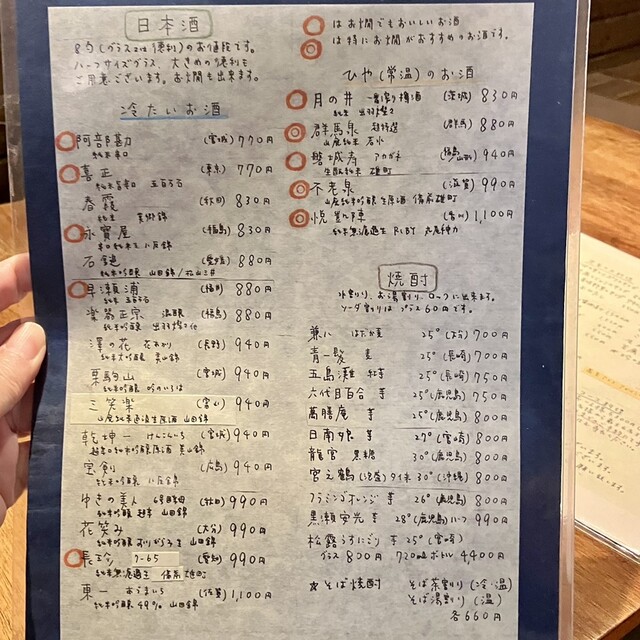 日本酒
8勺(グラスでは便利)のお値段です。
ハーフサイズグラス、大きめの便利も
ご用意ございます。お燗も出来ます。
冷たいお酒
阿部勘 (宮城) 770円
純米辛口
喜正 (東京) 770円
純米 五百万石
春霞 (秋田) 830円
純米 美郷錦
永寶屋 (福島) 830円
辛口純米 八反錦
石鎚 (愛媛) 880円
純米吟醸 山田錦/
早瀬浦 (福井) 880円
純米 五百万石
楽器正宗 (福島) 880円
純米吟醸 出羽燦々
澤の花 (長野) 940円
純米大吟醸 美山錦
栗駒山 (宮城) 940円
純米吟醸 吟のいろは
三笑楽 (富山) 940円
山廃純米 原酒 山田錦
乾坤一 (宮城) 940円
純米吟醸原酒 美山錦
宝剣 (広島) 940円
純米吟醸 八反錦
ゆきの美人 6号酵母 (秋田) 990円
純米吟醸 山田錦
花笑み (大分) 990円
純米吟醸 おりがらみ 山田錦
長珍 5-65 (愛知) 990円
純米無濾過生 備前雄町
東一 (佐賀) 1,100円
純米吟醸 49% 山田錦
はお燗でもおいしいお酒
は特にお燗がおすすめのお酒です。
ひや(常温)のお酒
月の井 (茨城) 830円
純米 出羽燦々
群馬泉 超特選 (群馬) 880円
山廃純米 若水
磐城壽 アカガネ (福島/山形) 940円
生酛純米 雄町
不老泉 (滋賀) 990円
山廃純米吟醸 生原酒 備前雄町
悦凱陣 (香川) 1,100円
純米無濾過生
焼酎
水割り、お湯割り、ロックに出来ます。
ソーダ割りは プラス60円です。
兼八 はだか麦 25° (大分) 700円
青一髪 麦 25° (長崎) 700円
五島灘 紅芋 25° (長崎) 750円
六代目百合 芋 25° (鹿児島) 750円
萬膳庵 芋 25° (鹿児島) 800円
日南娘 芋 27° (宮崎) 800円
龍宮 黒糖 30° (鹿児島) 800円
宮之鶴 (泡盛) タイ米 30° (沖縄) 800円
フラミンゴオレンジ 芋 26° (鹿児島) 800円
黒瀬安光 芋 28° (鹿児島) ハーフ 990円
松露うすにごり 芋 25° (宮崎)
グラス 800円 720mlボトル 4,400円
☆そば焼酎 そば茶割り (冷・温)
そば湯割り (温)
各660円